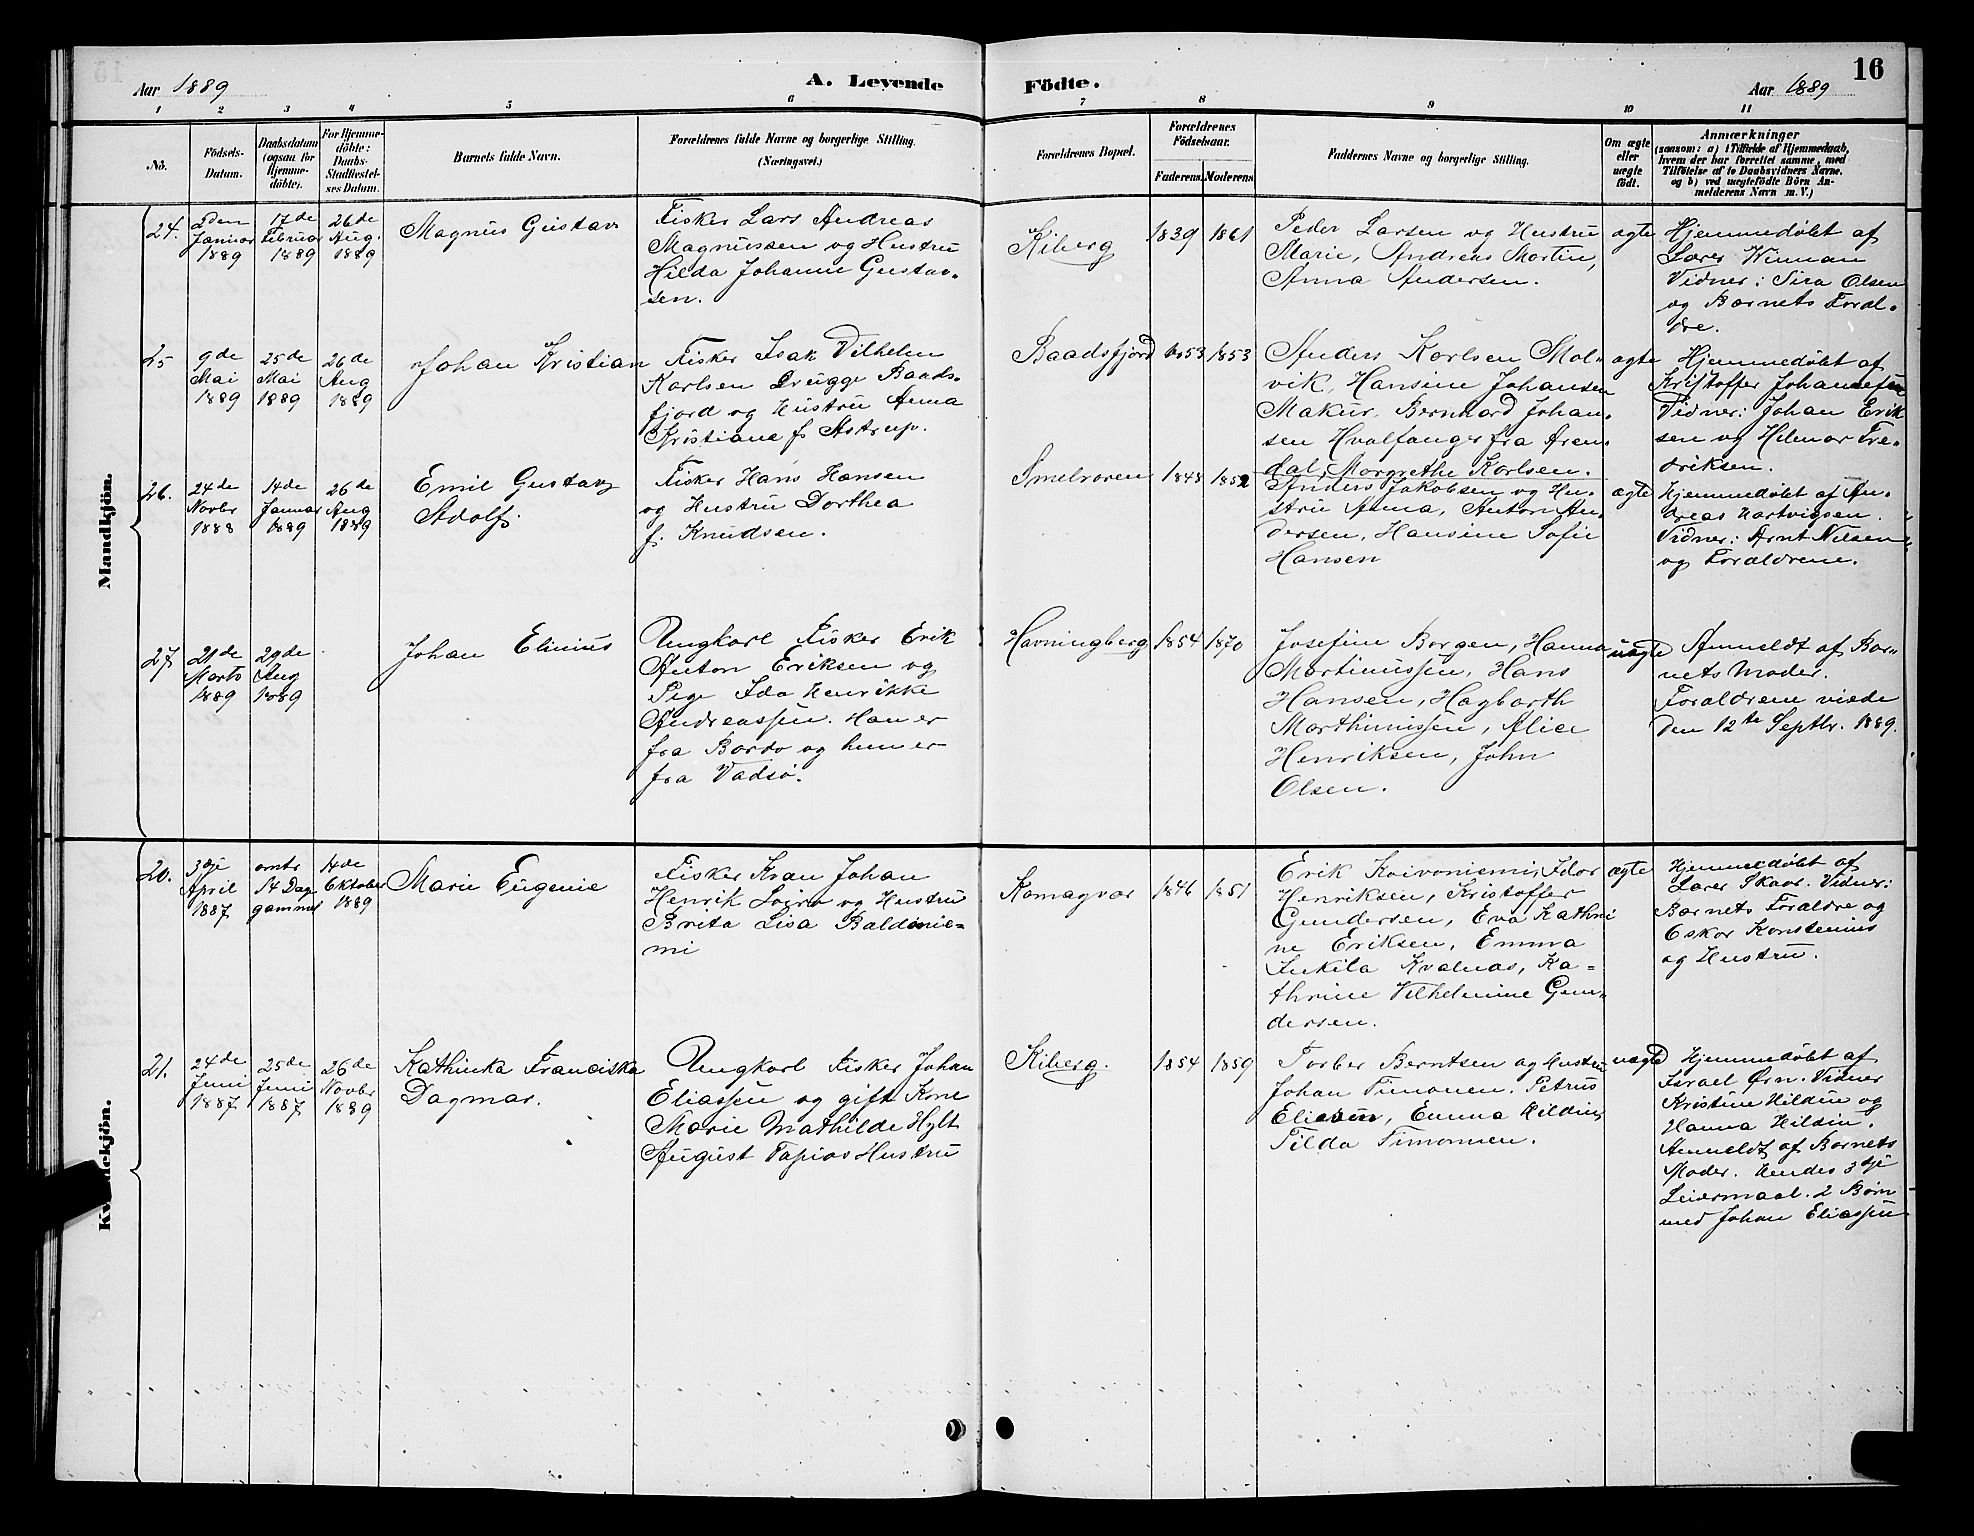 Aar 1889
A. Levende
Födte.
Aar 1889
16
1 2 3 4 5 6 7 8 9 10 11
No.
Födsels-
Datum.
Daabsdatum
(ogsaa for
Hjemme-
döbte).
For Hjemme-
döbte:
Daabs-
Stadfæstel-
ses Datum.
Barnets fulde Navn.
Forældrenes fulde Navne og borgerlige Stilling.
(Næringsvei.)
Forældrenes Bopæl.
Forældrenes
Födselsaar.
Faderens.
Moderens.
Faddernes Navne og borgerlige Stilling.
Om ægte
eller
uægte
födt.
Anmærkninger
(saasom: a) i Tilfælde af Hjemmedaab,
hvem der har forrettet samme, med
Tilföielse af to Daabsvidners Navne.
og b) ved uægtefödte Börn An-
melderens Navn m. V.)
Mandkjön.
24.
2den
Januar
1889
17de
Februar
1889
26de
Aug.
1889
Magnus Gustav
Fisker Lars Andreas
Magnussen og Hustru
Hilda Johanne Gustav-
sen.
Kiberg
1839
1861
Peder Larsen og Hustru
Marie, Andreas Martin,
Anna Andersen.
ægte
Hjemmedøbt af
Lærer Winman
Vidner: Sira Olsen
og Barnets Foræl-
dre.
25
9de
Mai
1889
25de
Mai
1889
26de
Aug
1889
Johan Kristian
Fisker Isak Vilhelm
Karlsen Drugge Baads-
fjord og Hustru Anna
Kristiane f. Astrup.
Baadsfjord
1853
1853
Anders Karlsen Mol-
vik, Hansine Johansen
Makur, Bernhard Johan-
sen Hvalfanger fra Aren-
dal, Margrethe Karlsen.
ægte
Hjemmedøbt af
Kristoffer Johannesen
Vidner: Johan Erik
sen og Hilmar Fre-
driksen.
26.
24de
Novbr
1888
14de
Januar
1889
26de
Aug
1889
Emil Gustav
Adolf.
Fisker Hans Hansen
og Hustru Dorthea
f. Knudsen.
Smelroren
1848
1852
Anders Jakobsen og Hu-
stru Anna, Anton An-
dersen, Hansine Sofie
Hansen
ægte
Hjemmedøbt af An-
dreas Hartvigsen.
Vidner: Arnt Nilsen
og Forældrene.
27
21de
Marts
1889
29de
Aug
1889
Johan Elinius
Ungkarl Fisker Erik
Anton Eriksen og
Pige Ida Henrikke
Andreassen. Han er
fra Bardo og hun er
fra Vadsø.
Havningberg
1854
1870
Josefine Borgen, Hanna
Martinussen, Hans
Hansen, Hagbarth
Marthinussen, Alice
Henriksen, John
Olsen.
uægte
Anmeldt af Bar-
nets Moder.
Forældrene viede
den 12te Septbr. 1889.
Kvindekjön.
20.
3dje
April
1887
omtr
14 Dage
gammel
14de
Oktober
1889
Marie Eugenie
Fisker Kvæn Johan
Henrik Lojra og Hustru
Brita Lisa Baldinie-
mi
Komagvær
1846
1851
Erik Koivoniemi, Idor
Henriksen, Kristoffer
Gundersen, Eva Kathri
ne Eriksen, Emma
Inkila Kvalnæs, Ka-
thrine Vilhelmine Gun-
dersen.
ægte
Hjemmedøbt af
Lærer Skaar. Vidner:
Barnets Forældre og
Oskar Konstenius
og Hustru.
21.
24de
Juni
1887
25de
Juni
1887
26de
Novbr
1889
Kathinka Franciska
Dagmar.
Ungkarl Fisker Johan
Eliassen og gift Kone
Marie Mathilde Hylt
August Tapios Hustru
Kiberg.
1854
1859
Torber Berntsen og Hustru
Johan Timonen. Petrus
Eliesen, Emma Hildin
Tilda Timonnen.
uægte
Hjemmedøbt af
Israel Ørn. Vidner
Kristine Hildin og
Hanna Hildin.
Anmeldt af Barnets
Moder. Hendes 3dje
Leiermaal. 2 Børn
med Johan Eliassen